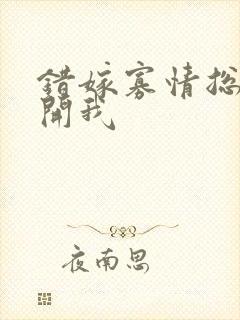 錯嫁寡情総
開我
夜南思